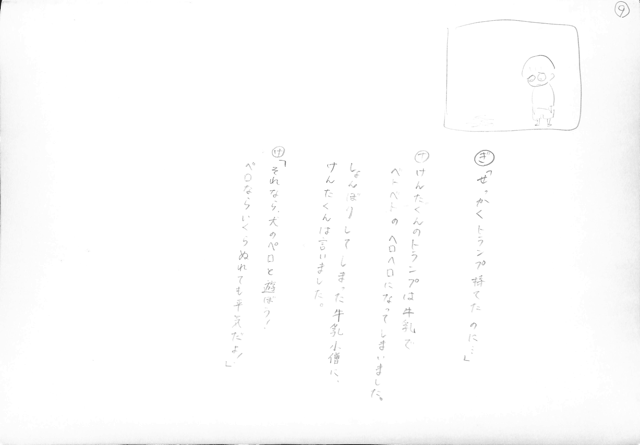 ⑨
ぎ「せっかくトランプ持てたのに…」
ナ けんたくんのトランプは牛乳で
ベトベトのヘロヘロになってしまいました。
しょんぼりしてしまった牛乳小僧に、
けんたくんは言いました。
け「それなら、犬のペロと遊ぼう！
ペロならいくらぬれても平気だよ！」